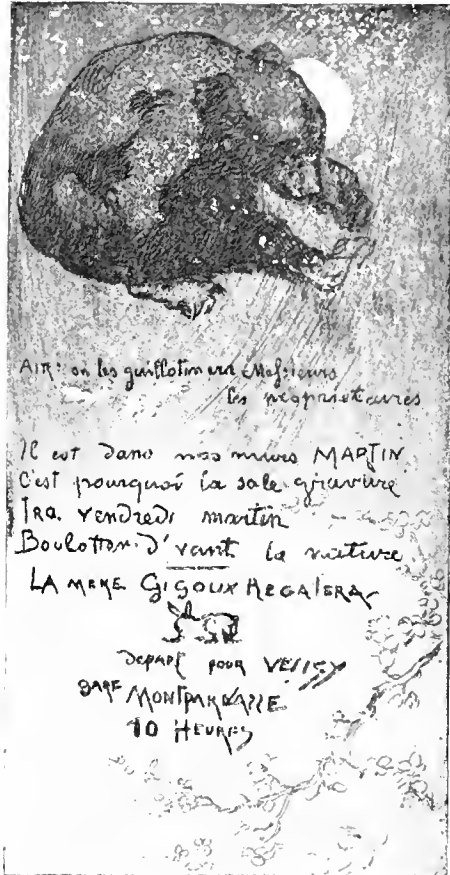 AIR: on les guillotinera Messieurs
les propriétaires
Il est dans nos murs MARTIN
C'est pourquoi la sale gravure
IRA vendredi martin
Boulotter d'vant la nature
LA MERE GIGOUX REGALERA
Depart pour VELISY
GARE MONTPARNASSE
10 HEURES